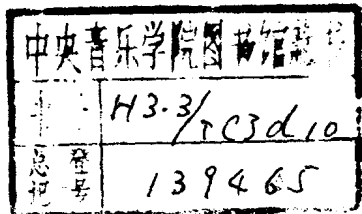 中央音乐学院图书馆藏书
H3·3/TC3d10
总登
记号 139465